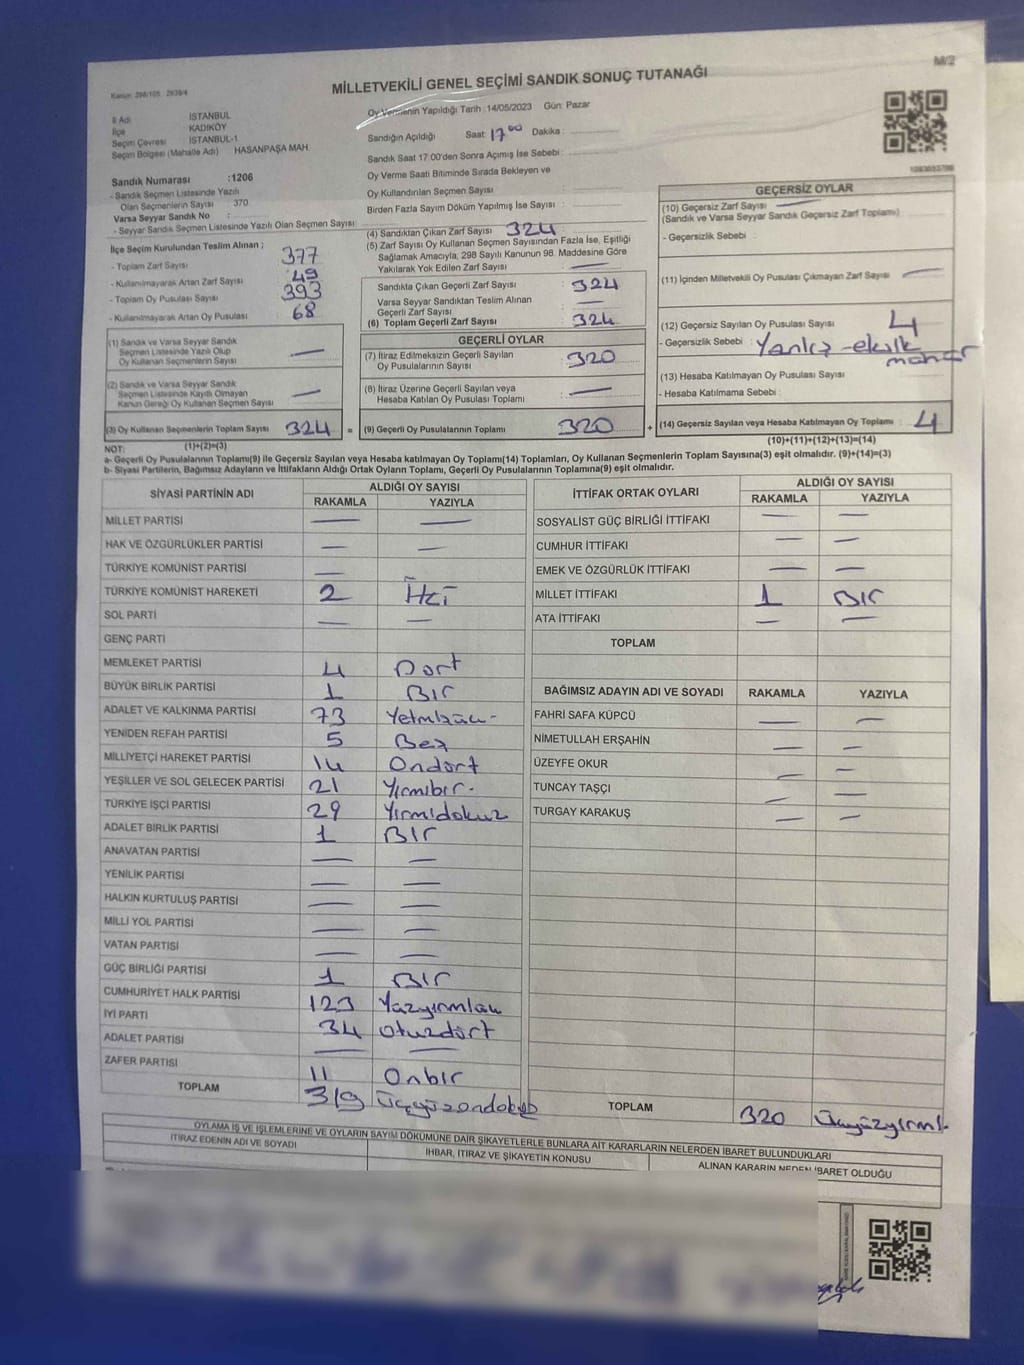 M/2
MİLLETVEKİLİ GENEL SEÇİMİ SANDIK SONUÇ TUTANAĞI
Kanun: 298/105 - 2839/4
İl Adı İSTANBUL
İlçe KADIKÖY
Seçim Çevresi İSTANBUL-1
Seçim Bölgesi (Mahalle Adı) HASANPAŞA MAH.
Oy Vermenin Yapıldığı Tarih : 14/05/2023 Gün: Pazar
Sandığın Açıldığı Saat: 17 00 Dakika :
Sandık Saat 17:00'den Sonra Açımış İse Sebebi :
Oy Verme Saati Bitiminde Sırada Bekleyen ve
Oy Kullandırılan Seçmen Sayısı :
Birden Fazla Sayım Döküm Yapılmış İse Sayısı :
Sandık Numarası :1206
- Sandık Seçmen Listesinde Yazılı
Olan Seçmenlerin Sayısı 370
Varsa Seyyar Sandık No :
- Seyyar Sandık Seçmen Listesinde Yazılı Olan Seçmen Sayısı :
İlçe Seçim Kurulundan Teslim Alınan ;
- Toplam Zarf Sayısı 377
- Kullanılmayarak Artan Zarf Sayısı 49
- Toplam Oy Pusulası Sayısı 393
- Kullanılmayarak Artan Oy Pusulası 68
(1) Sandık ve Varsa Seyyar Sandık
Seçmen Listesinde Yazılı Olup
Oy Kullanan Seçmenlerin Sayısı —
(2) Sandık ve Varsa Seyyar Sandık
Seçmen Listesinde Kayıtlı Olmayan
Kanun Gereği Oy Kullanan Seçmen Sayısı —
(3) Oy Kullanan Seçmenlerin Toplam Sayısı 324 =
(1)+(2)=(3)
(4) Sandıktan Çıkan Zarf Sayısı 324
(5) Zarf Sayısı Oy Kullanan Seçmen Sayısından Fazla İse, Eşitliği
Sağlamak Amacıyla; 298 Sayılı Kanunun 98. Maddesine Göre
Yakılarak Yok Edilen Zarf Sayısı : —
Sandıkta Çıkan Geçerli Zarf Sayısı : 324
Varsa Seyyar Sandıktan Teslim Alınan
Geçerli Zarf Sayısı : —
(6) Toplam Geçerli Zarf Sayısı : 324
GEÇERLİ OYLAR
(7) İtiraz Edilmeksizin Geçerli Sayılan
Oy Pusulalarının Sayısı : 320
(8) İtiraz Üzerine Geçerli Sayılan veya
Hesaba Katılan Oy Pusulası Toplamı : —
(9) Geçerli Oy Pusulalarının Toplamı 320 +
GEÇERSİZ OYLAR
(10) Geçersiz Zarf Sayısı : —
(Sandık ve Varsa Seyyar Sandık Geçersiz Zarf Toplamı)
- Geçersizlik Sebebi :
(11) İçinden Milletvekili Oy Pusulası Çıkmayan Zarf Sayısı : —
(12) Geçersiz Sayılan Oy Pusulası Sayısı : 4
- Geçersizlik Sebebi :
(13) Hesaba Katılmayan Oy Pusulası Sayısı :
- Hesaba Katılmama Sebebi :
(14) Geçersiz Sayılan veya Hesaba Katılmayan Oy Toplamı : 4
(10)+(11)+(12)+(13)=(14)
NOT:
a- Geçerli Oy Pusulalarının Toplamı(9) ile Geçersiz Sayılan veya Hesaba Katılmayan Oy Toplamı(14) Toplamları, Oy Kullanan Seçmenlerin Toplam Sayısına(3) eşit olmalıdır. (9)+(14)=(3)
b- Siyasi Partilerin, Bağımsız Adayların ve İttifakların Aldığı Ortak Oyların Toplamı, Geçerli Oy Pusulalarının Toplamına(9) eşit olmalıdır.
SİYASİ PARTİNİN ADI ALDIĞI OY SAYISI
RAKAMLA YAZIYLA
MİLLET PARTİSİ — —
HAK VE ÖZGÜRLÜKLER PARTİSİ — —
TÜRKİYE KOMÜNİST PARTİSİ —
TÜRKİYE KOMÜNİST HAREKETİ 2 İki
SOL PARTİ — —
GENÇ PARTİ
MEMLEKET PARTİSİ 4 Dört
BÜYÜK BİRLİK PARTİSİ 1 BIr
ADALET VE KALKINMA PARTİSİ 73 Yetmişüç-
YENİDEN REFAH PARTİSİ 5 Beş
MİLLİYETÇİ HAREKET PARTİSİ 14 Ondört
YEŞİLLER VE SOL GELECEK PARTİSİ 21 Yirmibir-
TÜRKİYE İŞÇİ PARTİSİ 29 Yirmidokuz
ADALET BİRLİK PARTİSİ 1 BIr
ANAVATAN PARTİSİ — —
YENİLİK PARTİSİ — —
HALKIN KURTULUŞ PARTİSİ — —
MİLLİ YOL PARTİSİ — —
VATAN PARTİSİ — —
GÜÇ BİRLİĞİ PARTİSİ 1 BIr
CUMHURİYET HALK PARTİSİ 123 Yüzyirmiüç
İYİ PARTİ 34 otuzdört
ADALET PARTİSİ — —
ZAFER PARTİSİ 11 Onbir
TOPLAM 319 üçyüzondokuz
İTTİFAK ORTAK OYLARI ALDIĞI OY SAYISI
RAKAMLA YAZIYLA
SOSYALİST GÜÇ BİRLİĞİ İTTİFAKI — —
CUMHUR İTTİFAKI — —
EMEK VE ÖZGÜRLÜK İTTİFAKI — —
MİLLET İTTİFAKI 1 BIr
ATA İTTİFAKI — —
TOPLAM
BAĞIMSIZ ADAYIN ADI VE SOYADI RAKAMLA YAZIYLA
FAHRİ SAFA KÜPCÜ — —
NİMETULLAH ERŞAHİN — —
ÜZEYFE OKUR — —
TUNCAY TAŞÇI — —
TURGAY KARAKUŞ — —
TOPLAM 320 Üçyüzyirmi-
OYLAMA İŞ VE İŞLEMLERİNE VE OYLARIN SAYIM DÖKÜMÜNE DAİR ŞİKAYETLERLE BUNLARA AİT KARARLARIN NELERDEN İBARET BULUNDUKLARI
İTİRAZ EDENİN ADI VE SOYADI İHBAR, İTİRAZ VE ŞİKAYETİN KONUSU ALINAN KARARIN NEDEN İBARET OLDUĞU